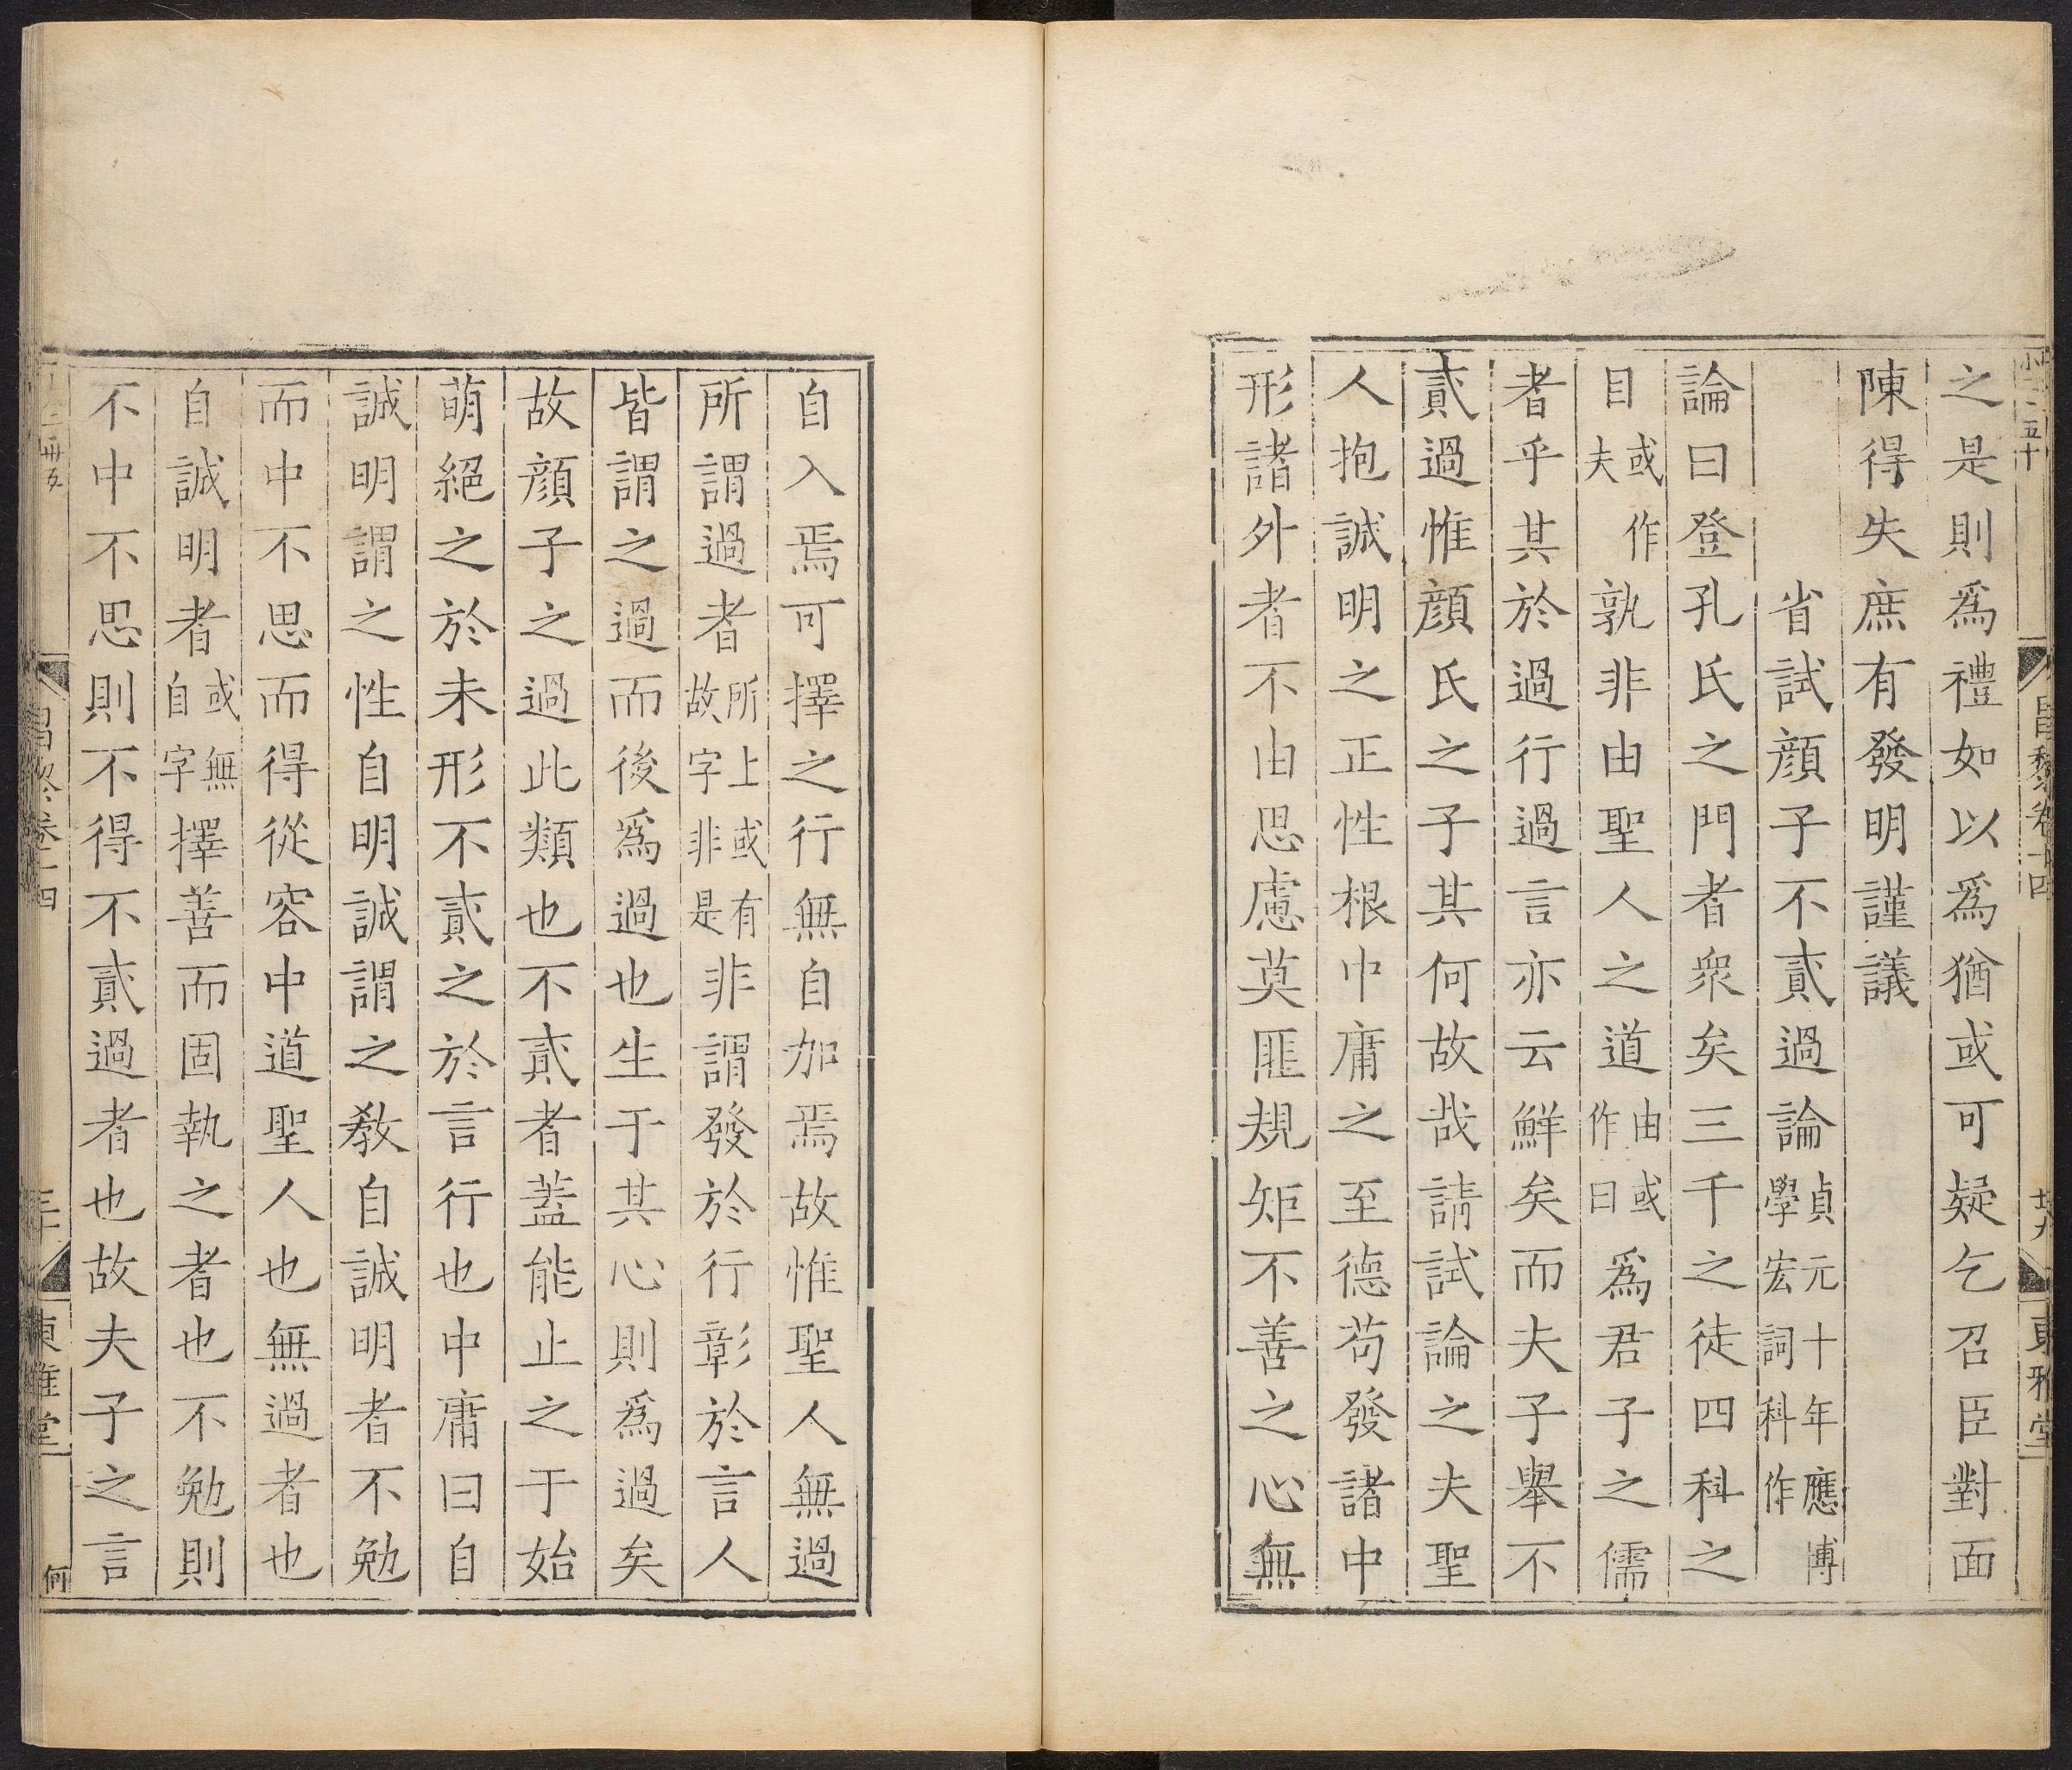 之是則爲禮如以爲猶或可疑乞召臣對面
陳得失庶有發明謹議
省試顔子不貳過論貞元十年應博學宏詞科作
論曰登孔氏之門者衆矣三千之徒四科之
目或作夫孰非由聖人之道由或作曰爲君子之儒
者乎其於過行過言亦云鮮矣而夫子舉不
貳過惟顔氏之子其何故哉請試論之夫聖
人抱誠明之正性根中庸之至德苟發諸中
形諸外者不由思慮莫匪規矩不善之心無
昌黎卷十四
東雅堂
自入焉可擇之行無自加焉故惟聖人無過
所謂過者所上或有故字非是非謂發於行彰於言人
皆謂之過而後爲過也生于其心則爲過矣
故顔子之過此類也不貳者葢能止之于始
萌絕之於未形不貳之於言行也中庸曰自
誠明謂之性自明誠謂之教自誠明者不勉
而中不思而得從容中道聖人也無過者也
自誠明者或無自字擇善而固執之者也不勉則
不中不思則不得不貳過者也故夫子之言
東雅堂
何